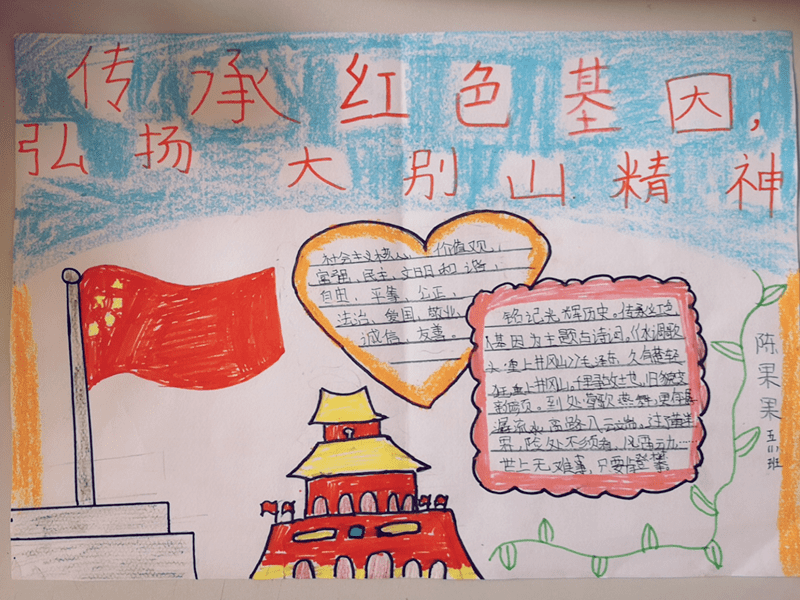 传承红色基因,
弘扬 大别山精神
社会主义核心 价值观,
富强、民主、文明和谐,
自由、平等、公正,
法治、爱国、敬业,
诚信、友善。
铭记光辉历史。传承红色
基因为主题与诗词。《水调歌
头·重上井冈山》毛泽东,久有凌云
重上井冈山,千里
到处莺歌燕舞,更有
潺流水,高路入云端。过
界,险处不须看,风雷动
世上无难事,只要 登攀
陈果果
五 班